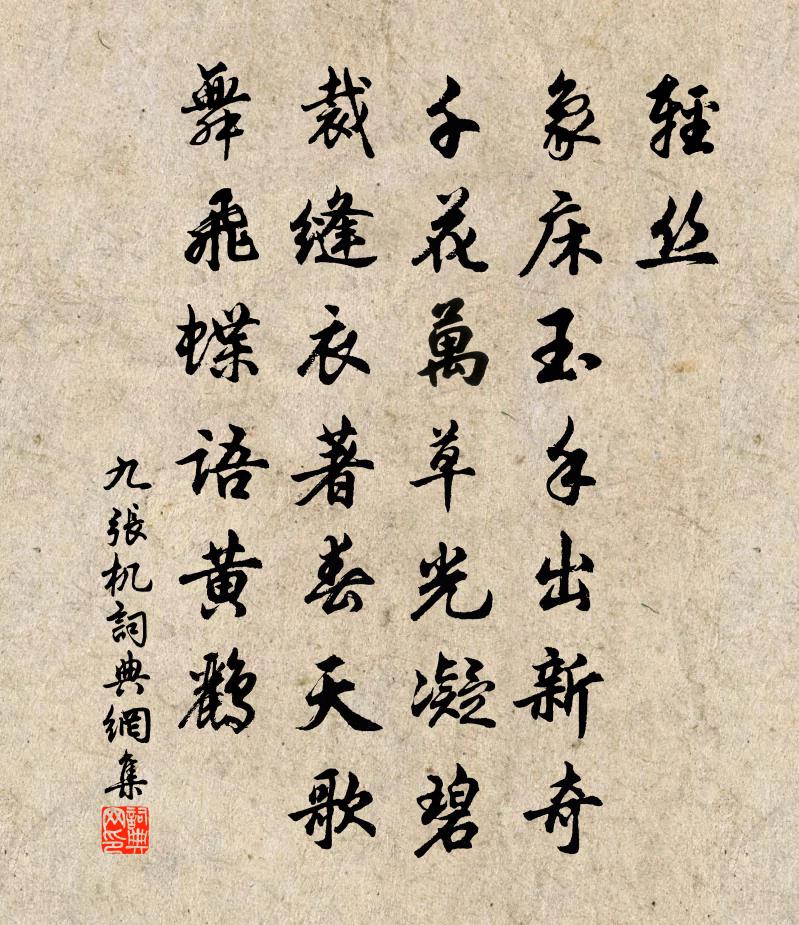 輕丝
象床玉手出新奇
千花萬草光凝碧
裁縫衣著春天歌
舞飛蝶語黄鸝
九張机詞典網集
詞典网印